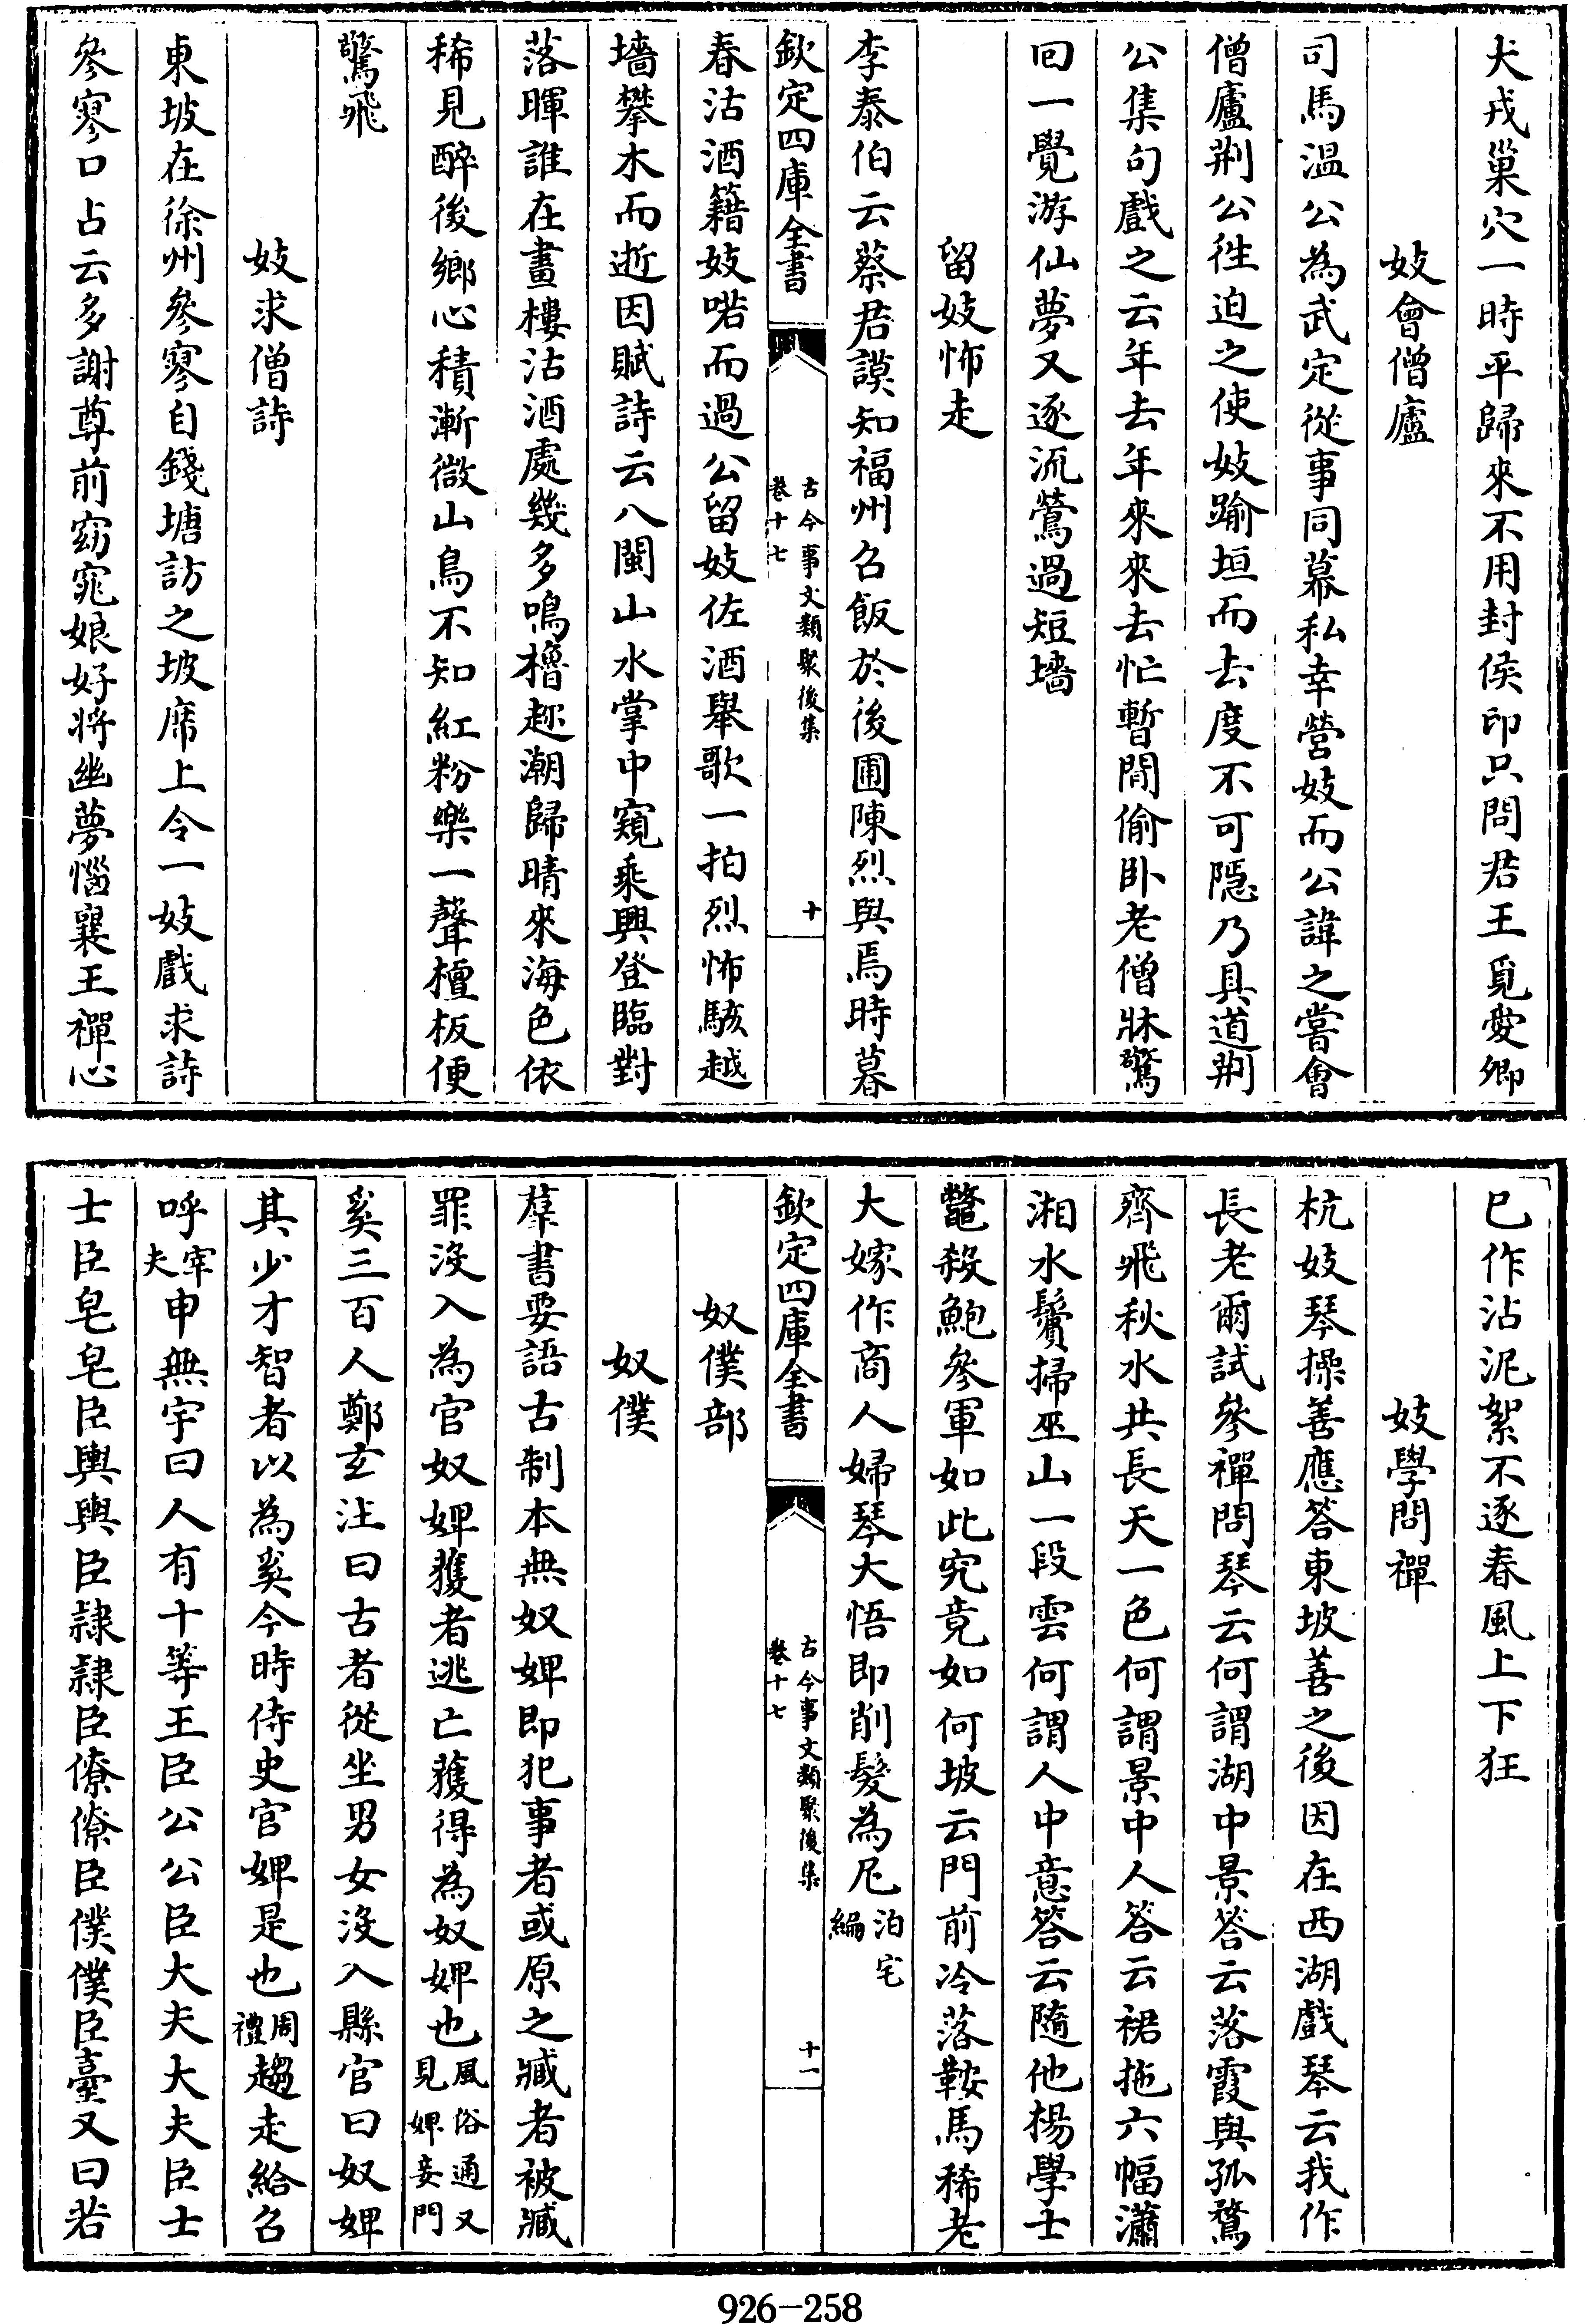 犬戎巢穴一時平歸來不用封侯印只問君王覓愛卿
妓會僧廬
司馬温公為武定從事同幕私幸營妓而公諱之嘗會
僧廬荆公徃迫之使妓踰垣而去度不可隱乃具道荆
公集句戲之云年去年來來去忙暫閒偷卧老僧牀驚
回一覺游仙夢又逐流鶯過短墻
留妓怖走
李泰伯云蔡君謨知福州召飯於後圃陳烈與焉時暮
欽定四庫全書
古今事文類聚後集
卷十七
十
春沽酒籍妓喏而過公留妓佐酒舉歌一拍烈怖駭越
墻攀木而逝因賦詩云八閩山水掌中窺乘興登臨對
落暉誰在畫樓沽酒處幾多鳴櫓趂潮歸晴來海色依
稀見醉後鄉心積漸微山鳥不知紅粉樂一聲檀板便
驚飛
妓求僧詩
東坡在徐州參寥自錢塘訪之坡席上令一妓戲求詩
參寥口占云多謝尊前窈窕娘好將幽夢惱襄王禪心
已作沾泥絮不逐春風上下狂
妓學問禪
杭妓琴操善應答東坡善之後因在西湖戲琴云我作
長老爾試參禪問琴云何謂湖中景答云落霞與孤鶩
齊飛秋水共長天一色何謂景中人答云裙拖六幅瀟
湘水鬢掃巫山一段雲何謂人中意答云隨他楊學士
鼈殺鮑參軍如此究竟如何坡云門前冷落鞍馬稀老
大嫁作商人婦琴大悟即削髮為尼泊宅編
欽定四庫全書
古今事文類聚後集
卷十七
十一
奴僕部
奴僕
羣書要語古制本無奴婢即犯事者或原之臧者被臧
罪沒入為官奴婢獲者逃亡獲得為奴婢也風俗通又見婢妾門
奚三百人鄭玄注曰古者從坐男女沒入縣官曰奴婢
其少才智者以為奚今時侍史官婢是也周禮趨走給召
呼宰夫申無宇曰人有十等王臣公公臣大夫大夫臣士
士臣皂皂臣輿輿臣隷隷臣僚僚臣僕僕臣臺又曰若
926-258